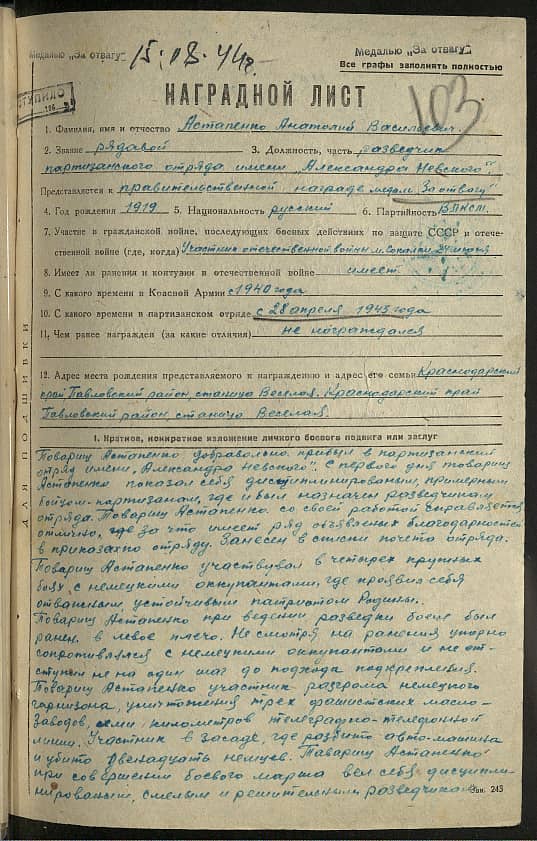 Медалью „За отвагу"
15.08.44г.
Медалью „За отвагу"
Все графы заполнять полностью
103
НАГРАДНОЙ ЛИСТ
1. Фамилия, имя и отчество Астапенко Анатолий Васильевич.
2. Звание рядовой 3. Должность, часть разведчик
партизанского отряда имени „Александра Невского".
Представляется к правительственной награде медаль За отвагу"
4. Год рождения 1919 5. Национальность русский 6. Партийность ВЛКСМ.
7. Участие в гражданской войне, последующих боевых действиях по защите СССР и отече-
ственной войне (где, когда) Участник отечественной войны
8. Имеет ли ранения и контузии в отечественной войне имеет
9. С какого времени в Красной Армии с 1940 года
10. С какого времени в партизанском отряде с 28 апреля 1943 года
11. Чем ранее награжден (за какие отличия) не награждался
12. Адрес места рождения представляемого к награждению и адрес его семьи Краснодарский
край Павловский район, станица Веселая. Краснодарский край
Павловский район, станица Веселая.
ДЛЯ ПОДШИВКИ
I. Краткое, конкретное изложение личного боевого подвига или заслуг
Товарищ Астапенко добравольно прибыл в партизанский
отряд имени „Александра Невского". С первого дня товарищ
Астапенко показал себя дисциплинированым, примерным
бойцом-партизанам, где и был назначен разведчикам
отряда. Товарищ Астапенко со своей работой справляется
отлично, где за что имеет ряд объявленых благодарностей
в приказах по отряду. Занесен в списки почета отряда.
Товарищ Астапенко участвовал в четырех крупных
боях с немецкими оккупантами, где проявил себя
отважным, устойчивым патриотом Родины.
Товарищ Астапенко при ведении разведки боем был
ранен в левое плечо. Не смотря на ранения упорно
сопротивлялся с немецкими оккупантами и не от-
ступил не на один шаг до подхода подкрепления.
Товарищ Астапенко участник разгрома немецкого
гарнизона, уничтожения трех фашистских масло-
заводов, семи километров телеграфно-телефонной
линии. Участник в засаде, где разбито авто-машина
и убито двенадцать немцев. Товарищ Астапенко
при совершении боевого марша вел себя дисципли-
нированым, смелым и решительным разведчикам
Зак. 243